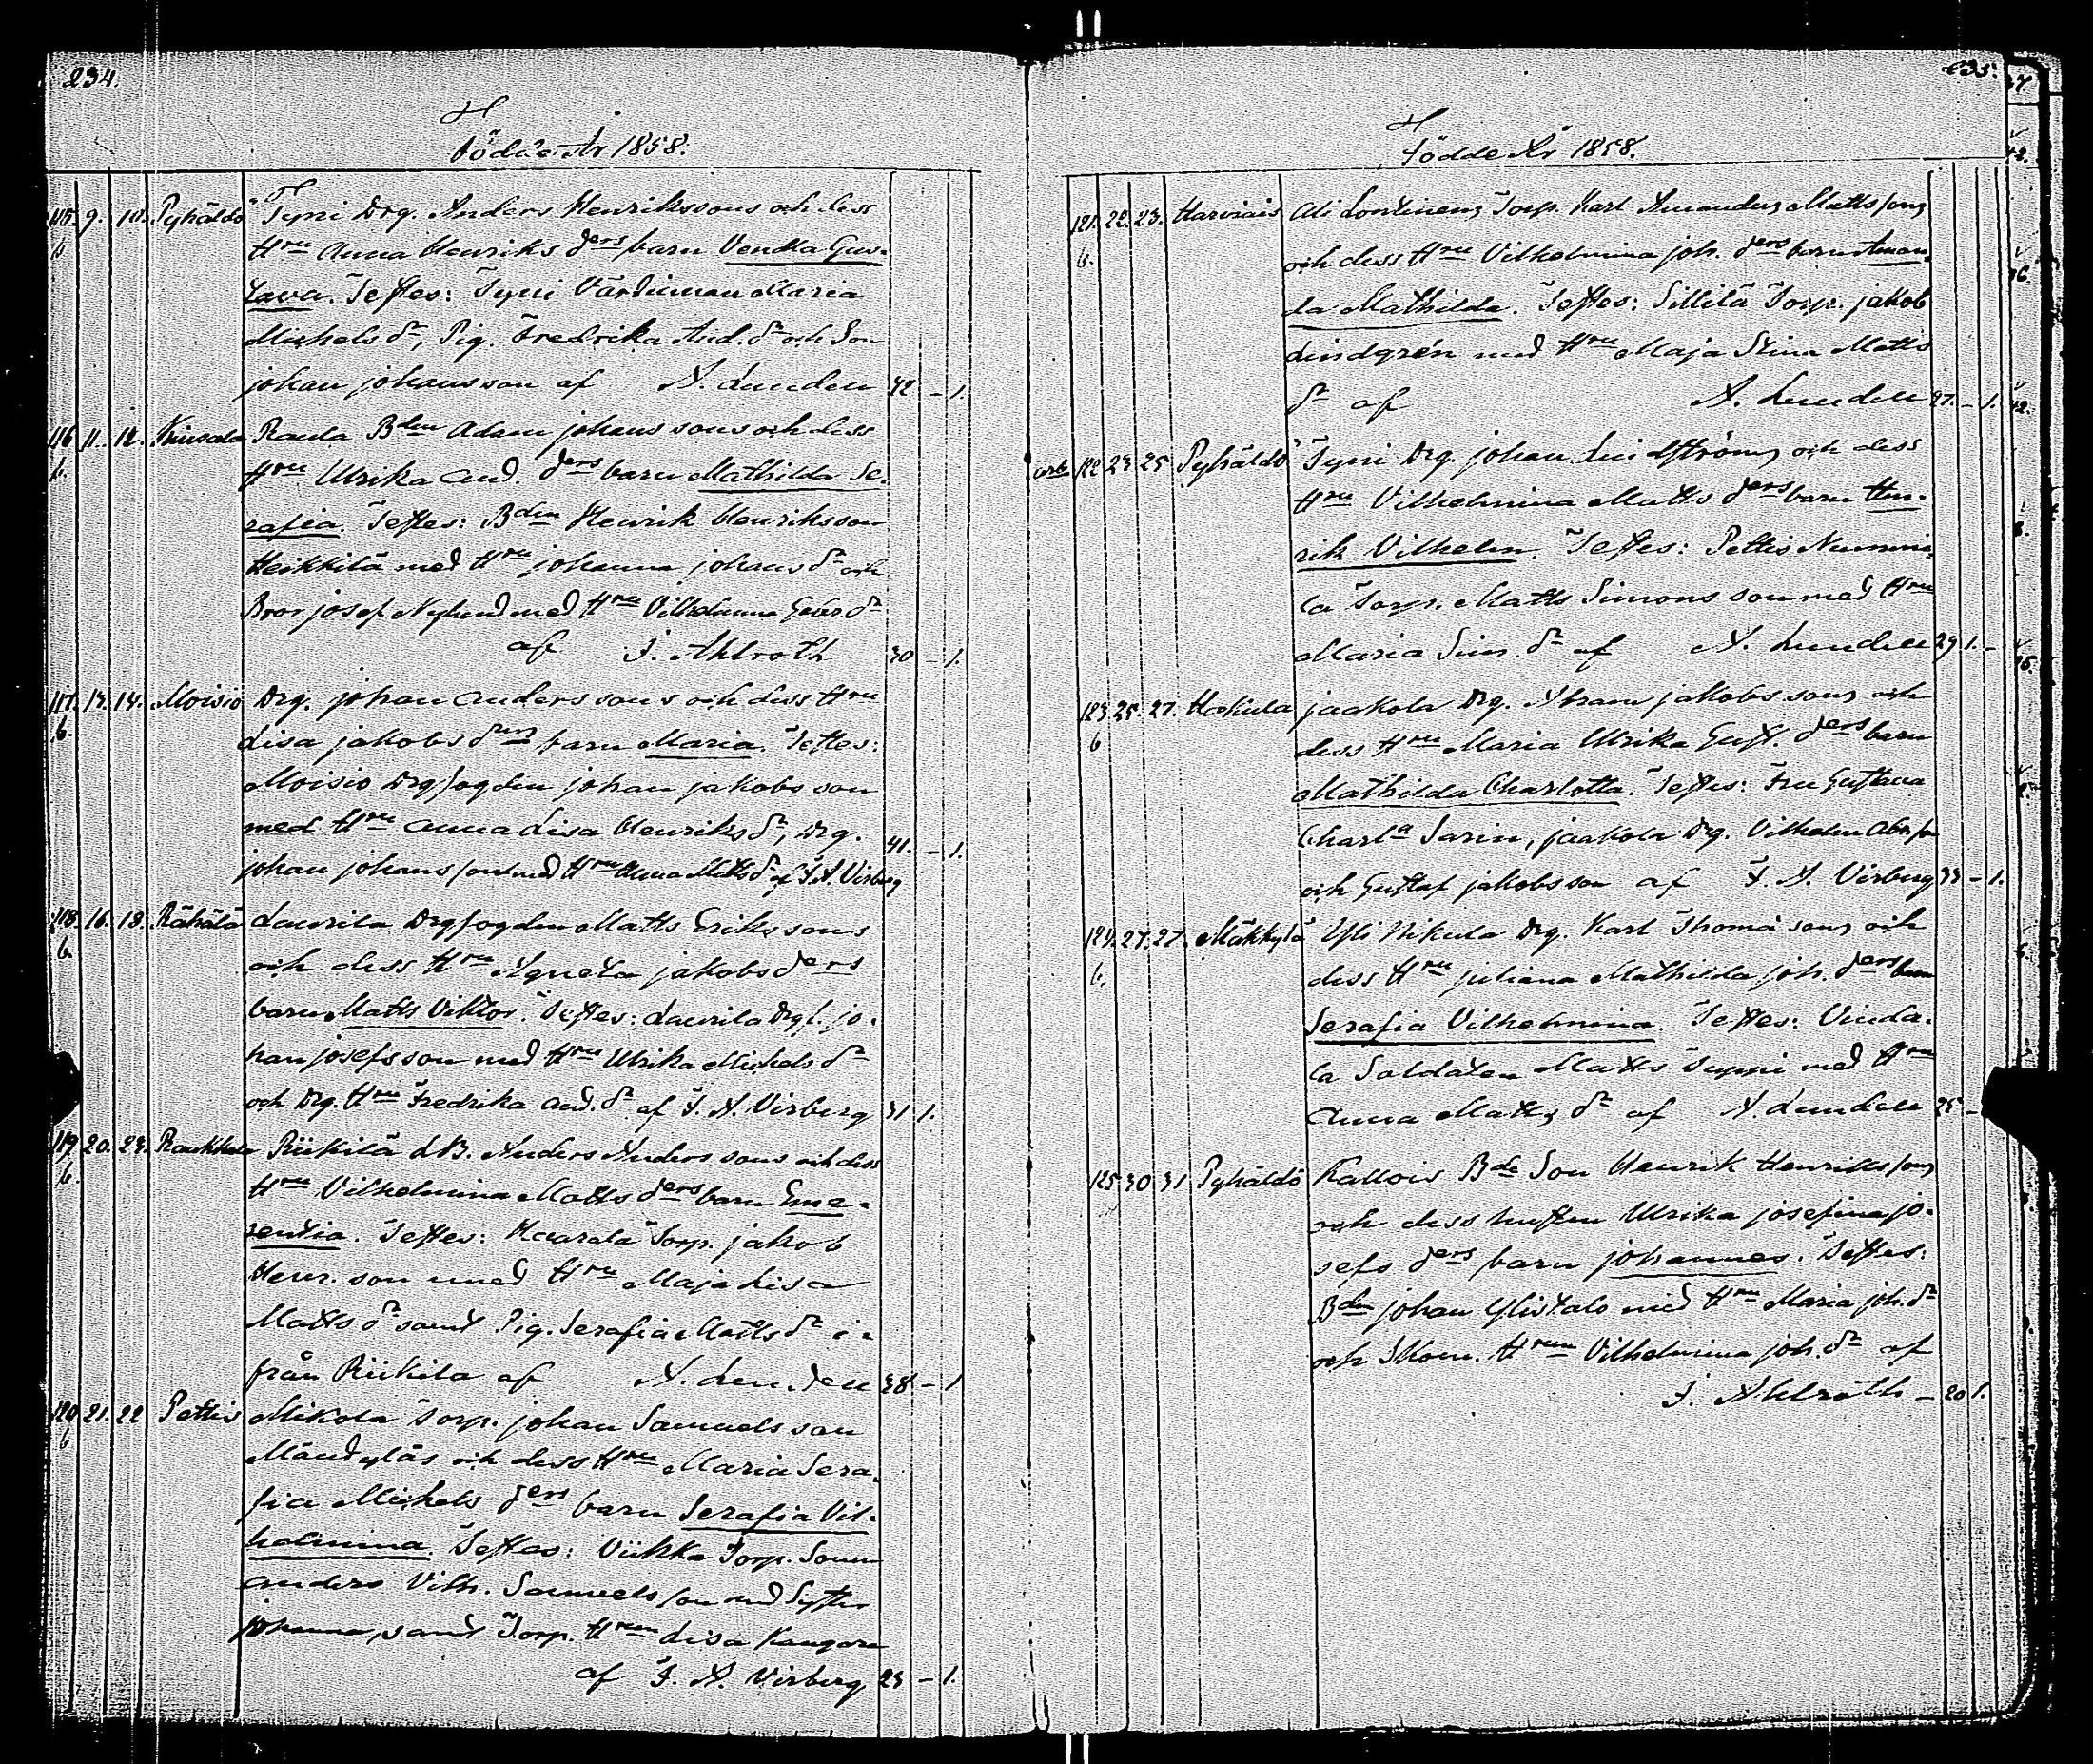 234.
Födde År 1858.
115. 9. 10. Pyhäldö Tyni Drg. Anders Henrikssons och dess
b Hru Anna Henriks ders barn Vendla Gus-
tava. Testes: Tyni Värdinnan Maria
Michels dr, Pig. Fredrika And. dr och Son
johan johansson af A. Lunden 42 - 1.
116 11. 12. Kinsala Raula Bden Adam johanssons och dess
b. Hru Ulrika And. ders barn Mathilda Se-
rafia. Testes: Bden Henrik Henriksson
Heikkilä med Hru johanna johans dr och
Bror josef Nylund med Hru Vilhelmina Gabr. dr
af F. Ahlroth 30 - 1.
117. 13. 14. Moisio Drg. johan Anderssons och dess Hru
b. Lisa jakobs ders barn Maria. Testes:
Moisio Drgfogden johan jakobsson
med Hru Anna Lisa Henriks dr, Drg.
johan johansson med Hru Anna Matts dr af F. A. Virberg 41. - 1.
118. 16. 18. Rähälä Laurila Drgfogden Matts Erikssons
b. och dess Hru Agneta jakobs ders
barn Matts Viktor. Testes: Laurila Drgf. jo-
han josefsson med Hru Ulrika Michels dr
och Drg. Hru Fredrika And. dr af F. A. Virberg 31 1.
119 20. 24. Raukkala Riikilä LB. Anders Anderssons och dess
b. Hru Vilhelmina Matts ders barn Eme-
rentia. Testes: Torp. jakob
Henr. son med Hru Maja Lisa
Matts dr samt Pig. Serafia Matts dr i-
från Riikilä af A. Lunden 38 - 1
120 21. 22 Pettis Mikola Torp. johan Samuelsson
b Mändyläs och dess Hru Maria Sera-
fia Michels ders barn Serafia Vil-
helmina. Testes: Viikka Torp. Sonen
Anders Vilh. Samuelsson med Syster
johanna, samt Torp. Hrun Lisa Kangare
af F. A. Virberg 23 - 1.
235.
Födde År 1858.
121. 22. 23. Harviais Ali Lontinens Torp. Karl Amandus Mattssons
b. och dess Hru Vilhelmina joh. ders barn Aman-
da Mathilda. Testes: Sillilä Torp. jakob
Lindgrén med Hru Maja Stina Matts
dr af A. Lunden 27. - 1.
122 23 25 Pyhäldö Tyni Drg. johan Lindströms och dess
Hru Vilhelmina Matts ders barn Hen-
rik Vilhelm. Testes: Pettis Nummi-
la Torp. Matts Simonsson med Hru
Maria Sim. dr af A. Lunden 29 1. -
123. 25. 27. Hakula jaakola Drg. Abram jakobssons och
b dess Hru Maria Ulrika Gust. ders barn
Mathilda Charlotta. Testes: Fru Gustava
Charlta Sarin, jaakola Drg. Vilhelm Abr.son
och Gustaf jakobsson af F. A. Virberg 33 - 1.
124. 27. 27. Mäkkylä Yli Nikula Drg. Karl Thomä sons och
b. dess Hru juliana Mathilda joh. ders barn
Serafia Vilhelmina. Testes: Vinda-
la Soldaten Matts Tyyni med Hru
Anna Matts dr af A. Lunden 25 -
125 30 31 Pyhäldö Kallois Bde Son Henrik Henrikssons
och dess hustru Ulrika josefina jo-
sefs ders barn johannes. Testes:
Bden johan Ylistalo med Hru Maria joh. dr
och Skom. Hrun Vilhelmina joh. dr af
F. Ahlroth - 20 1.